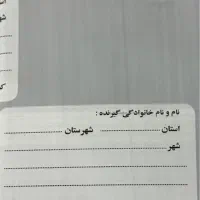 نام و نام خانوادگی گیرنده :
استان ........................ شهرستان ........................
شهر ........................